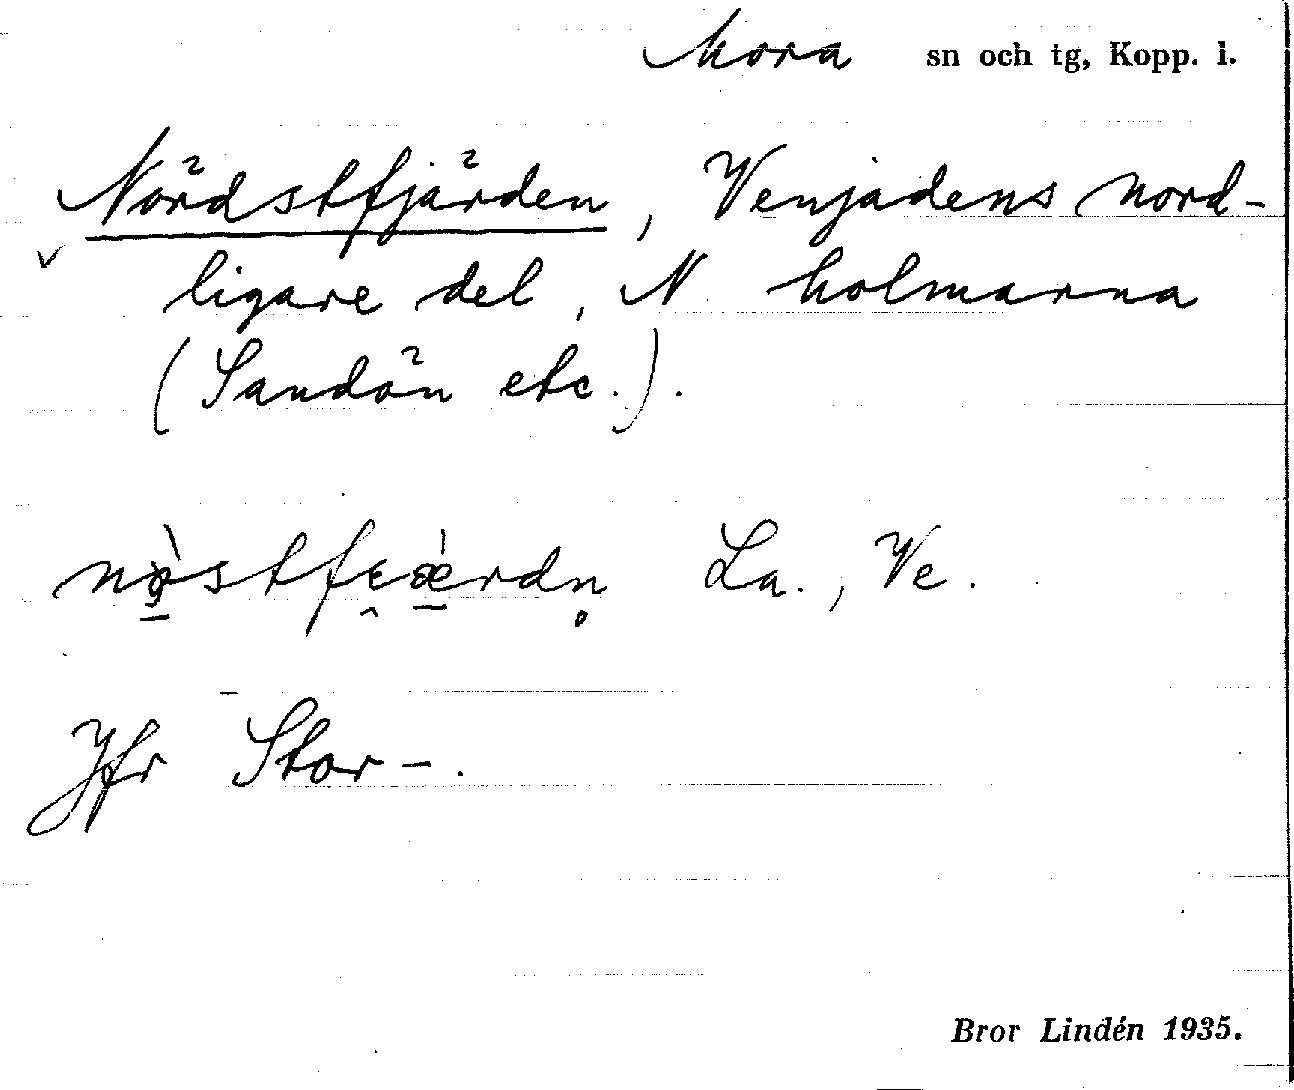 Mora sn och tg, Kopp. l.
Nördstfjärden, Venjadens nord-
v ligare del, N holmarna
(Sandön etc.).
nø̠̀stfɛ̯æ̠̀rdn̥ La., Ve.
Jfr Stor-.
Bror Lindén 1935.